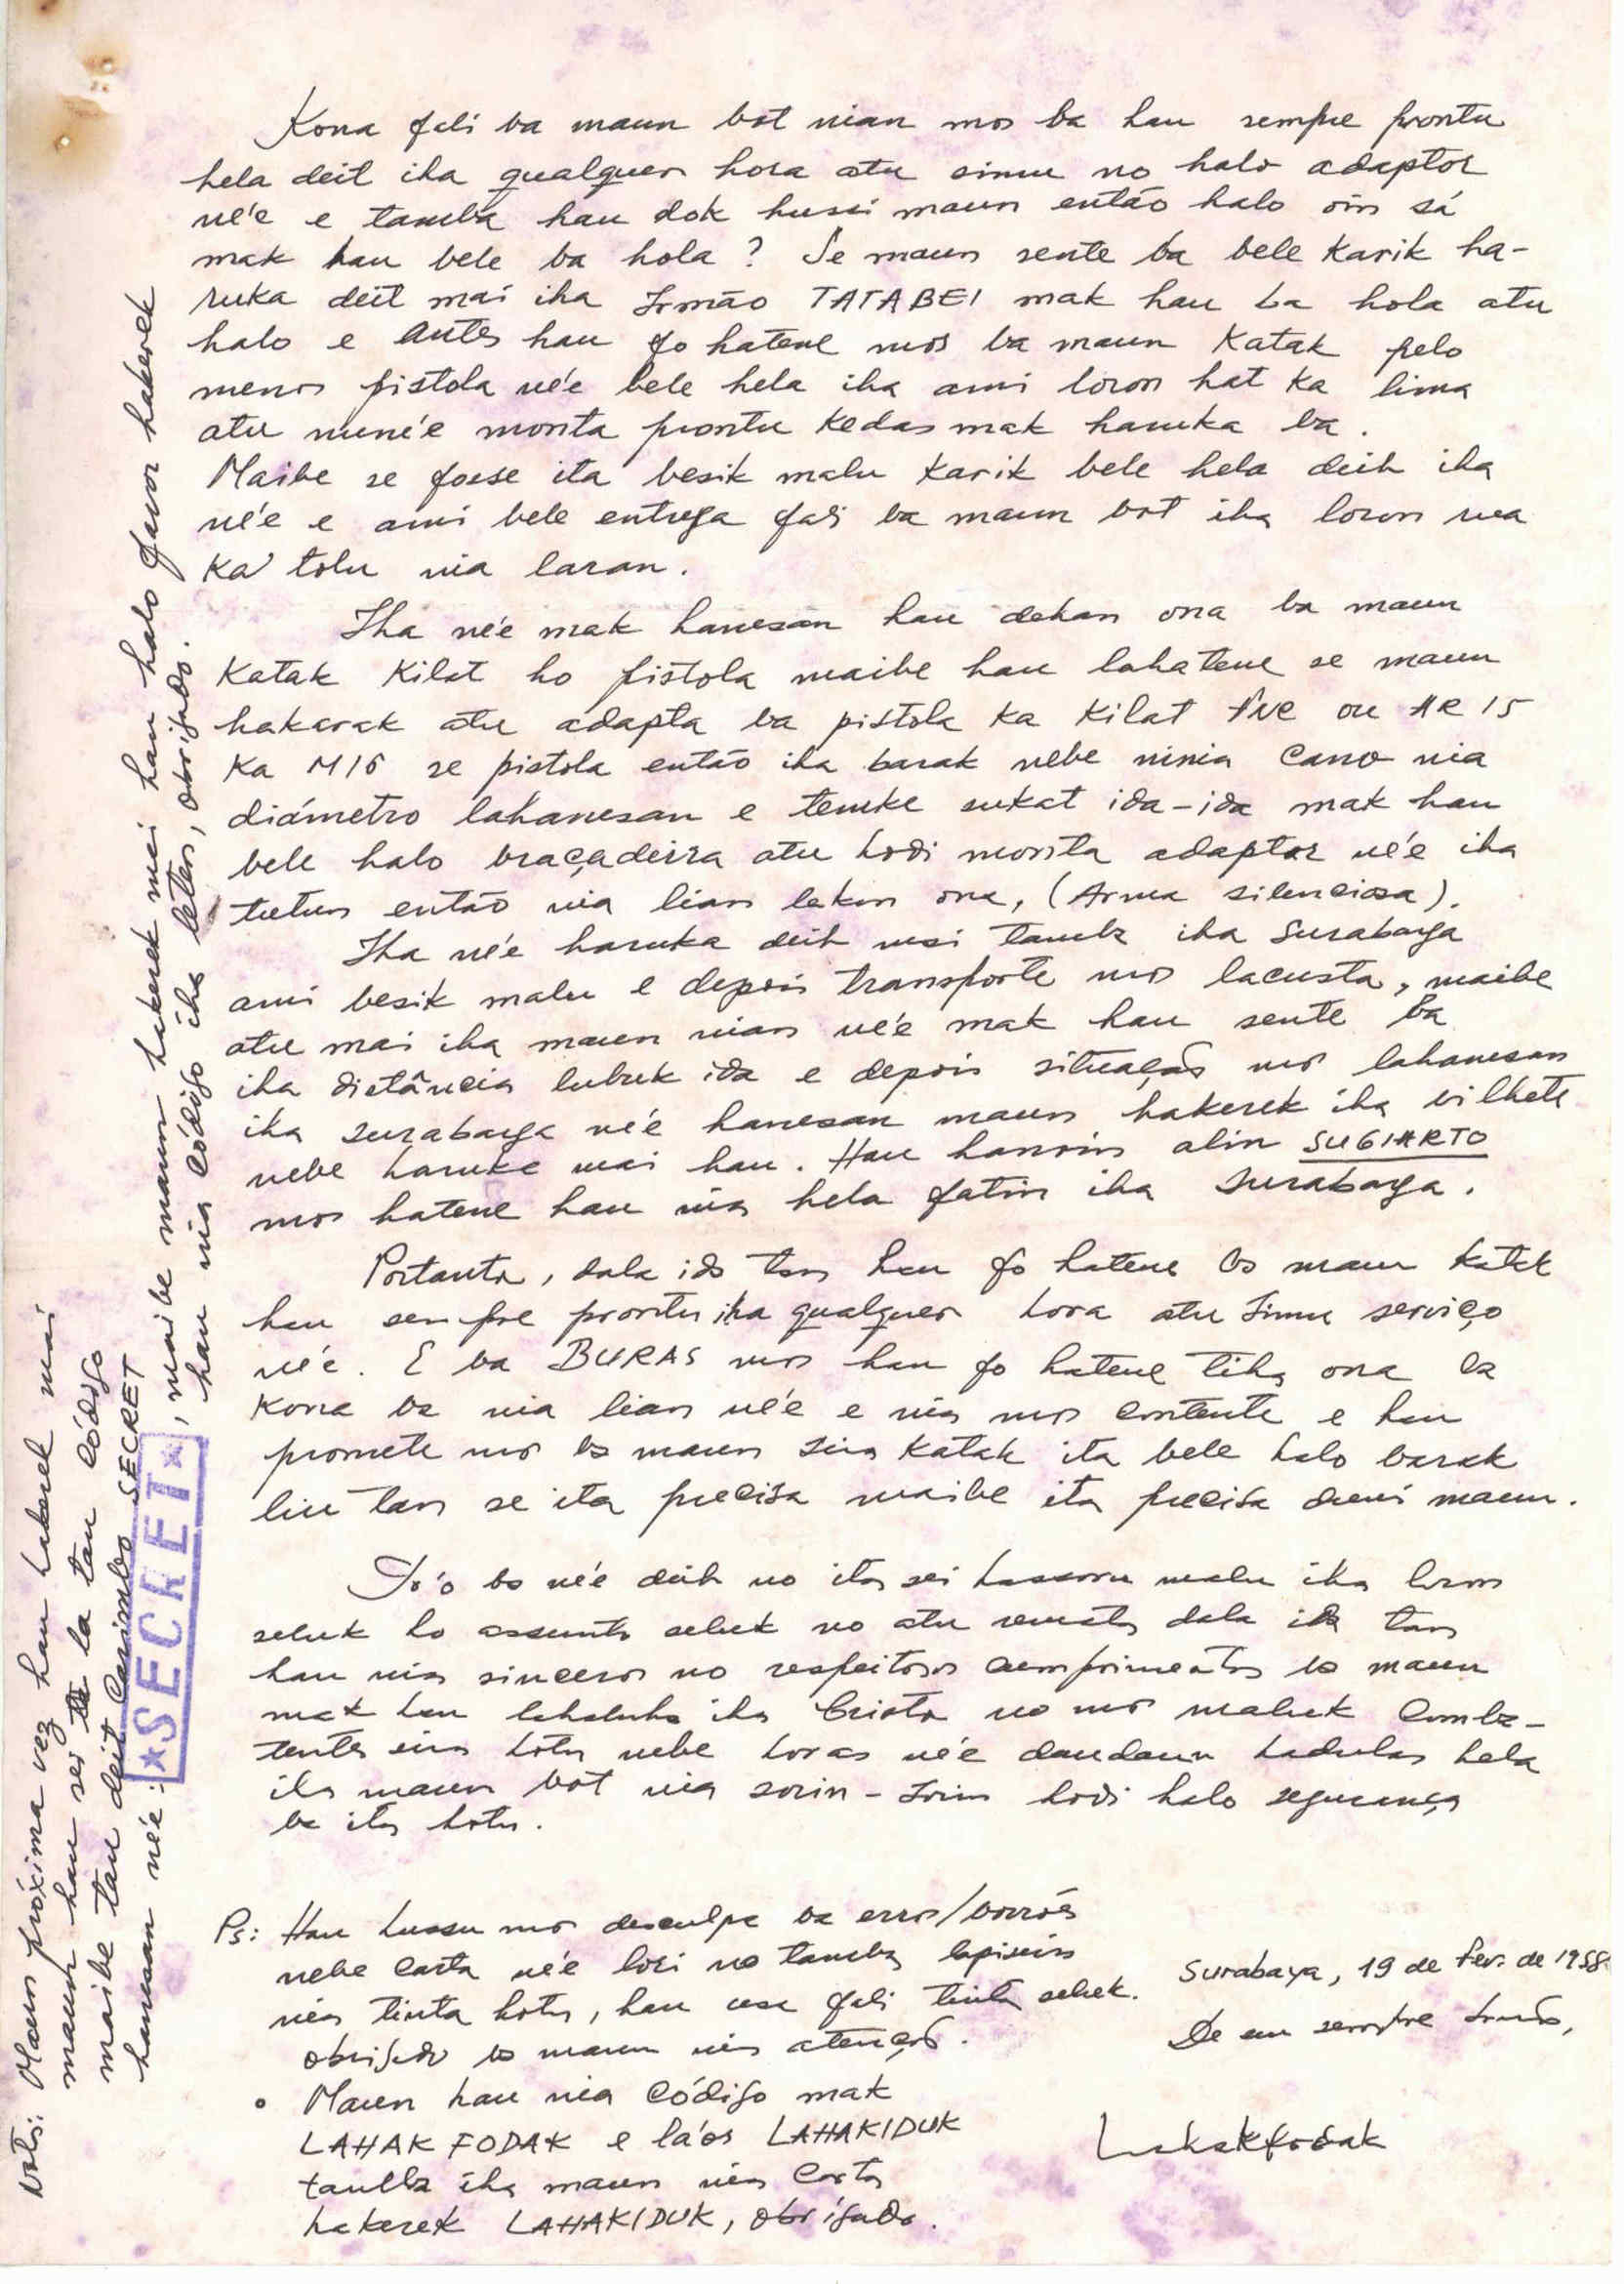 Kona fali ba maun bot nian mos ba hau sempre prontu
hela deit iha qualquer hora atu simu no halo adaptor
ne'e e tamba hau dok hussi maun então halo oin sá
mak hau bele ba hola? Se maun sente ba bele karik ha-
ruka deit mai iha Irmão TATABEI mak hau ba hola atu
halo e antes hau fo hatene mos ba maun Katak pelo
menos pistola ne'e bele hela iha ami loron hat ka lima
atu nune'e monta prontu kedas mak haruka ba.
Maibe se fosse ita besik malu karik bele hela deit iha
ne'e e ami bele entrega fali ba maun bot iha loron rua
Ka tolu nia laran.
Iha ne'e mak hanesan hau dehan ona ba maun
Katak Kilat ho pistola maibe hau lahatene se maun
hakarak atu adapta ba pistola ka Kilat ou AR 15
Ka M16 se pistola então iha barak nebe ninia cano nia
diámetro lahanesan e tenke sukat ida-ida mak hau
bele halo braçadeira atu hodi monta adaptor ne'e iha
tutun então nia lian lakon ona, (Arma silenciosa).
Iha ne'e haruka deit mai tamba iha Surabaya
ami besik malu e depois transporte mos lacusta, maibe
atu mai iha maun nian ne'e mak hau sente ba
iha distância lubuk ida e depois situação mos lahanesan
iha surabaya ne'e hanesan maun hakerek iha bilhete
nebe haruka mai hau. Hau hanoin alin SUGIARTO
mos hatene hau nia hela fatin iha Surabaya.
Portanto, dala ida tan hau fo hatene ba maun katak
hau sempre prontu iha qualquer hora atu simu serviço
ne'e. E ba BURAS mos hau fo hatene tiha ona ba
kona ba nia lian ne'e e nia mos contente e hau
promete mos ba maun sira katak ita bele halo barak
liu tan se ita precisa maibe ita precisa duni maun.
To'o ba ne'e deit no ita sei hassoru malu iha loron
seluk ho assunto seluk no atu remata dala ida tan
hau nia sinceros no respeitosos cumprimentos ba maun
mak hau lahaluha iha Cristo no mos maluk comba-
tentes sira hotu nebe horas ne'e daudaun hadulas hela
iha maun bot nia sorin-sorin hodi halo segurança
ba ita hotu.
Ps: Hau hussu mos desculpa ba erros/borrões
nebe carta ne'e lori no tamba lapiseira
nia tinta hotu, hau usa fali tinta seluk.
obrigado ba maun nia atenção.
• Maun hau nia código mak
LAHAK FODAK e la'os LAHAKIDUK
tamba iha maun nia carta
hakerek LAHAKIDUK, obrigado.
Surabaya, 19 de Fev. de 1988
De seu sempre Irmão,
Lahakfodak
Nota: Maun próxima vez hau hakerek mai
maun hau sei la tau código
maibe tau deit carimbo SECRET
hanesan ne'e: *SECRET*, maibe maun hakerek mai hau halo favor hakerek
hau nia código iha leten, obrigado.